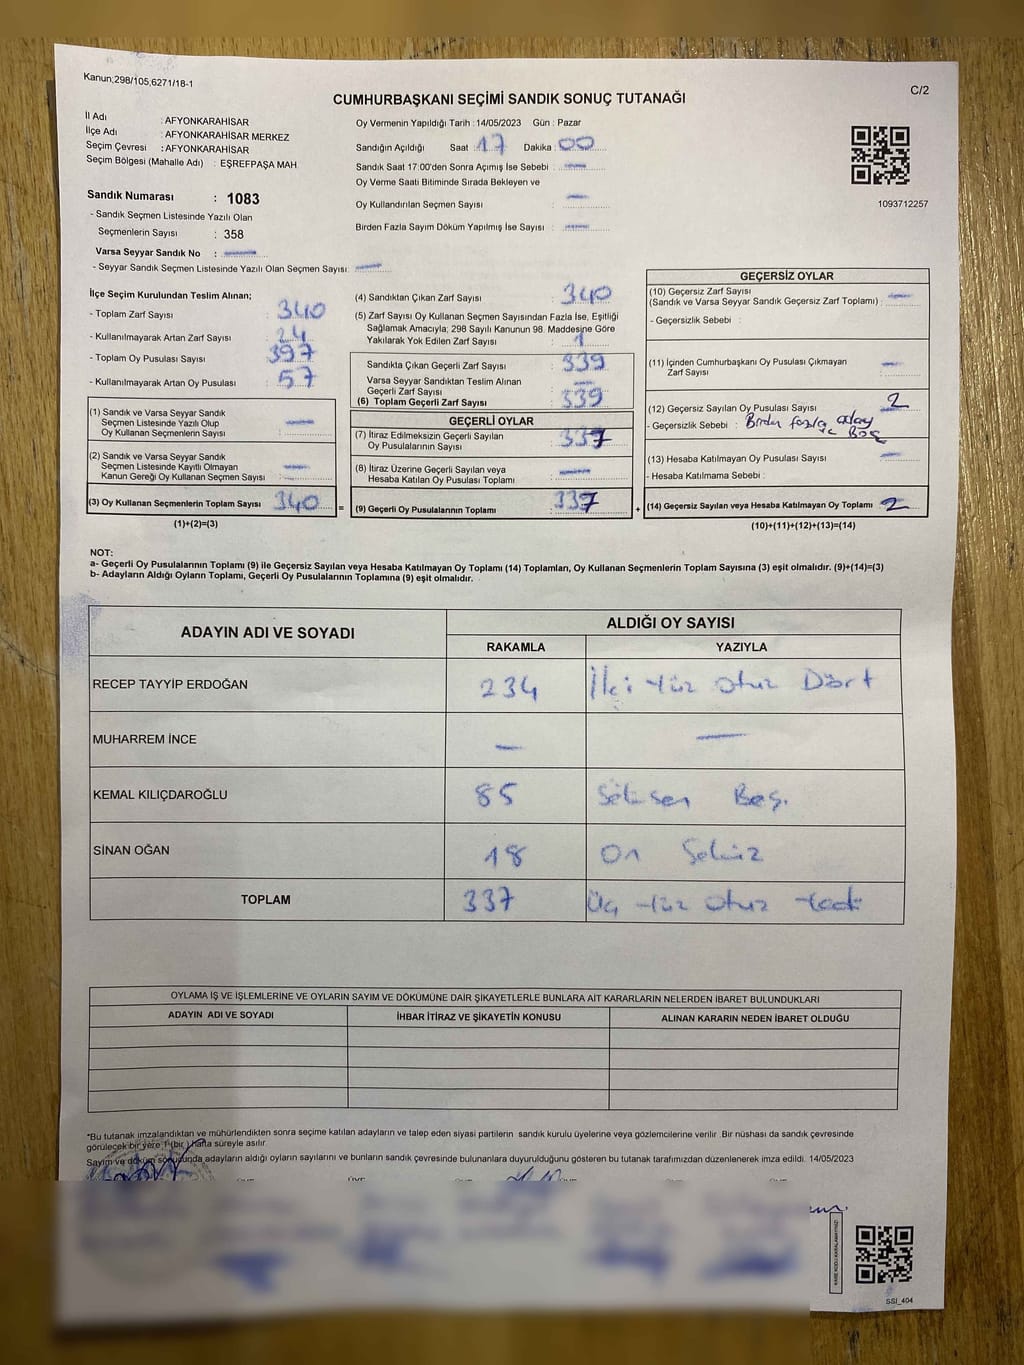 Kanun;298/105,6271/18-1
C/2
CUMHURBAŞKANI SEÇİMİ SANDIK SONUÇ TUTANAĞI
İl Adı : AFYONKARAHİSAR
İlçe Adı : AFYONKARAHİSAR MERKEZ
Seçim Çevresi : AFYONKARAHİSAR
Seçim Bölgesi (Mahalle Adı) : EŞREFPAŞA MAH.
Sandık Numarası : 1083
- Sandık Seçmen Listesinde Yazılı Olan
Seçmenlerin Sayısı : 358
Varsa Seyyar Sandık No : —
- Seyyar Sandık Seçmen Listesinde Yazılı Olan Seçmen Sayısı: —
Oy Vermenin Yapıldığı Tarih : 14/05/2023 Gün : Pazar
Sandığın Açıldığı Saat : 17 Dakika : 00
Sandık Saat 17:00'den Sonra Açımış İse Sebebi : —
Oy Verme Saati Bitiminde Sırada Bekleyen ve
Oy Kullandırılan Seçmen Sayısı : —
Birden Fazla Sayım Döküm Yapılmış İse Sayısı : —
1093712257
İlçe Seçim Kurulundan Teslim Alınan;
- Toplam Zarf Sayısı : 340
- Kullanılmayarak Artan Zarf Sayısı : 24
- Toplam Oy Pusulası Sayısı : 397
- Kullanılmayarak Artan Oy Pusulası : 57
(1) Sandık ve Varsa Seyyar Sandık
Seçmen Listesinde Yazılı Olup
Oy Kullanan Seçmenlerin Sayısı : —
(2) Sandık ve Varsa Seyyar Sandık
Seçmen Listesinde Kayıtlı Olmayan
Kanun Gereği Oy Kullanan Seçmen Sayısı : —
(3) Oy Kullanan Seçmenlerin Toplam Sayısı : 340
(1)+(2)=(3)
(4) Sandıktan Çıkan Zarf Sayısı : 340
(5) Zarf Sayısı Oy Kullanan Seçmen Sayısından Fazla İse, Eşitliği
Sağlamak Amacıyla; 298 Sayılı Kanunun 98. Maddesine Göre
Yakılarak Yok Edilen Zarf Sayısı : 1
Sandıkta Çıkan Geçerli Zarf Sayısı : 339
Varsa Seyyar Sandıktan Teslim Alınan
Geçerli Zarf Sayısı : —
(6) Toplam Geçerli Zarf Sayısı : 339
GEÇERLİ OYLAR
(7) İtiraz Edilmeksizin Geçerli Sayılan
Oy Pusulalarının Sayısı : 337
(8) İtiraz Üzerine Geçerli Sayılan veya
Hesaba Katılan Oy Pusulası Toplamı : —
= (9) Geçerli Oy Pusulalarının Toplamı : 337
GEÇERSİZ OYLAR
(10) Geçersiz Zarf Sayısı
(Sandık ve Varsa Seyyar Sandık Geçersiz Zarf Toplamı) : —
- Geçersizlik Sebebi :
(11) İçinden Cumhurbaşkanı Oy Pusulası Çıkmayan
Zarf Sayısı : —
(12) Geçersiz Sayılan Oy Pusulası Sayısı : 2
- Geçersizlik Sebebi : Birden fazla aday
ve Boş
(13) Hesaba Katılmayan Oy Pusulası Sayısı : —
- Hesaba Katılmama Sebebi :
+ (14) Geçersiz Sayılan veya Hesaba Katılmayan Oy Toplamı : 2
(10)+(11)+(12)+(13)=(14)
NOT:
a- Geçerli Oy Pusulalarının Toplamı (9) ile Geçersiz Sayılan veya Hesaba Katılmayan Oy Toplamı (14) Toplamları, Oy Kullanan Seçmenlerin Toplam Sayısına (3) eşit olmalıdır. (9)+(14)=(3)
b- Adayların Aldığı Oyların Toplamı, Geçerli Oy Pusulalarının Toplamına (9) eşit olmalıdır.
ADAYIN ADI VE SOYADI
ALDIĞI OY SAYISI
RAKAMLA YAZIYLA
RECEP TAYYİP ERDOĞAN 234 İki Yüz Otuz Dört
MUHARREM İNCE — —
KEMAL KILIÇDAROĞLU 85 Seksen Beş.
SİNAN OĞAN 18 On Sekiz
TOPLAM 337 Üç Yüz Otuz Yedi
OYLAMA İŞ VE İŞLEMLERİNE VE OYLARIN SAYIM VE DÖKÜMÜNE DAİR ŞİKAYETLERLE BUNLARA AİT KARARLARIN NELERDEN İBARET BULUNDUKLARI
ADAYIN ADI VE SOYADI İHBAR İTİRAZ VE ŞİKAYETİN KONUSU ALINAN KARARIN NEDEN İBARET OLDUĞU
*Bu tutanak imzalandıktan ve mühürlendikten sonra seçime katılan adayların ve talep eden siyasi partilerin sandık kurulu üyelerine veya gözlemcilerine verilir .Bir nüshası da sandık çevresinde
görülecek bir yere 1 (bir ) hafta süreyle asılır.
Sayım ve döküm sonucunda adayların aldığı oyların sayılarını ve bunların sandık çevresinde bulunanlara duyurulduğunu gösteren bu tutanak tarafımızdan düzenlenerek imza edildi. 14/05/2023
KARE KODU KARALAMAYINIZ!
SSİ_404